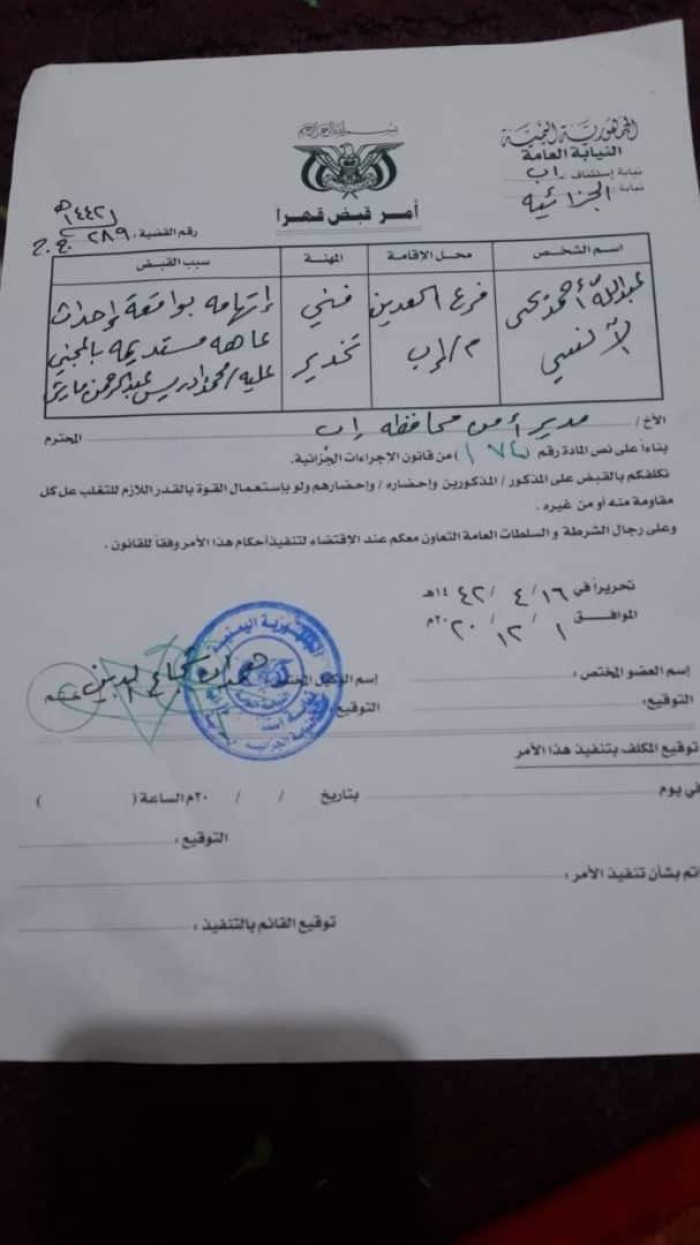 بسم الله الرحمن الرحيم
الجمهورية اليمنية
النيابة العامة
نيابة إستئناف إب
نيابة الجزائية
أمر قبض قهرا
رقم القضية، ٢٨٩ ج.ج
١٤٤٢هـ
اسم الشخص محل الإقامة المهنة سبب القبض
عبدالله أحمد يحيى فرع العدين فني إتهامه بواقعة إحداث
الآنسي م/إب تخدير عاهه مستديمه بالمجني
عليه/محمد ادريس عبدالرحمن
الأخ/ مدير أمن محافظه إب المحترم
بناءاً على نص المادة رقم ( ) من قانون الإجراءات الجزائية.
نكلفكم بالقبض على المذكور / المذكورين وإحضاره / وإحضارهم ولو بإستعمال القوة بالقدر اللازم للتغلب عل كل
مقاومة منه أو من غيره .
وعلى رجال الشرطة و السلطات العامة التعاون معكم عند الإقتضاء لتنفيذ أحكام هذا الأمر وفقاً للقانون .
تحريراً في ١٦/ ٤ / ١٤٤٢هـ
الموافق ١ / ١٢ / ٢٠٢٠م
إسم العضو المختص : إسم الوكيل المختص
التوقيع: التوقيع
ختم
توقيع المكلف بتنفيذ هذا الأمر
في يوم بتاريخ / / ٢٠م الساعة ( )
التوقيع :
اتم بشأن تنفيذ الأمر :
توقيع القائم بالتنفيذ :